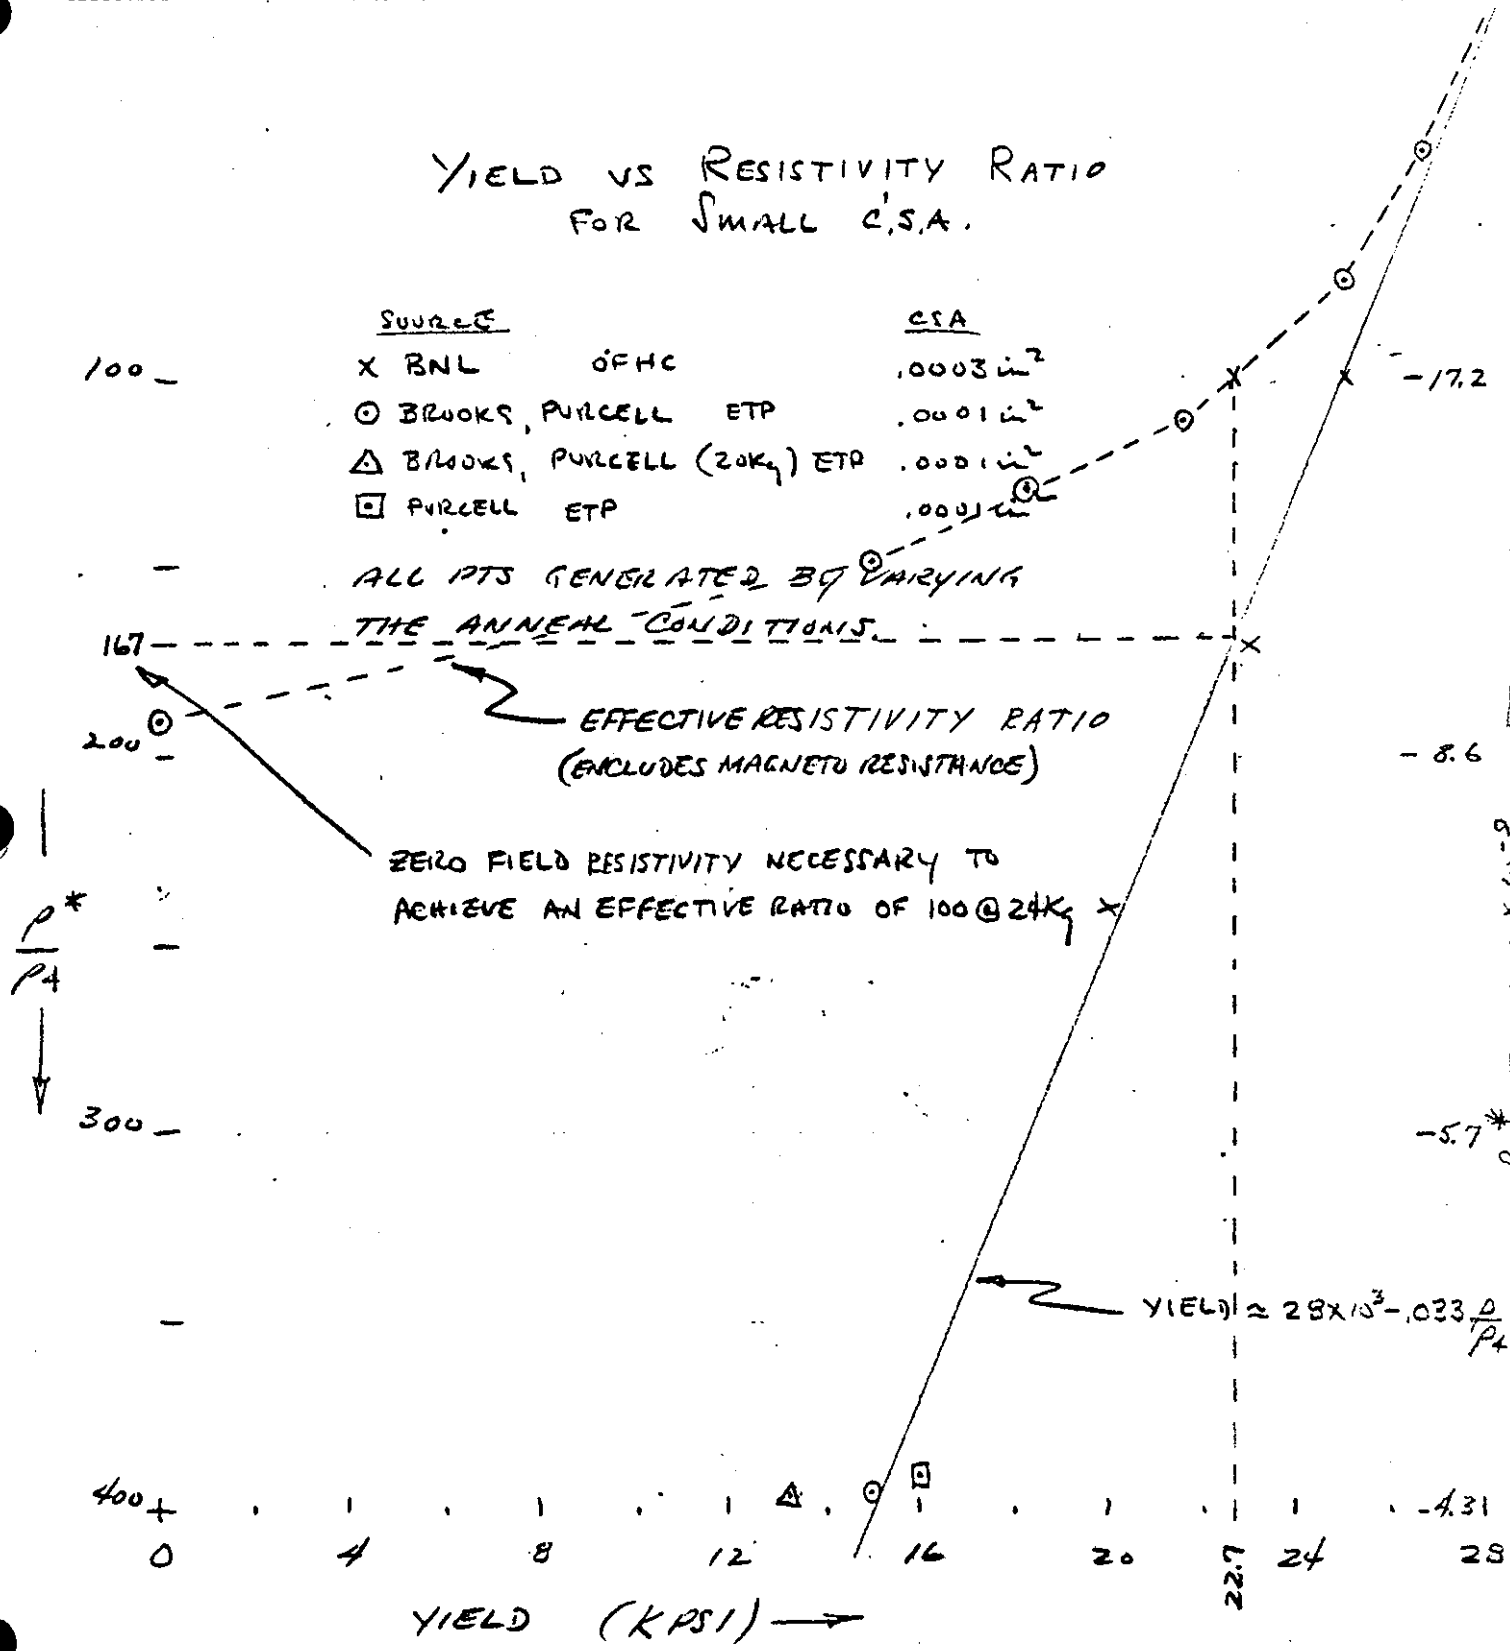 YIELD VS RESISTIVITY RATIO
FOR SMALL C.S.A.
SOURCE CSA
X BNL OFHC .0003 in²
⊙ BROOKS, PURCELL ETP .0001 in²
△ BROOKS, PURCELL (20Kg) ETP .0001 in²
⊡ PURCELL ETP .0001 in²
ALL PTS GENERATED BY VARYING
THE ANNEAL CONDITIONS.
100
-17.2
167
EFFECTIVE RESISTIVITY RATIO
(INCLUDES MAGNETO RESISTANCE)
200
- 8.6
ZERO FIELD RESISTIVITY NECESSARY TO
ACHIEVE AN EFFECTIVE RATIO OF 100 @ 24Kg
ρ*
ρ4
300
-5.7
*
YIELD ≈ 28X10³-.033 ρ/ρ4
400
-4.31
0 4 8 12 16 20 22.7 24 28
YIELD (KPSI)